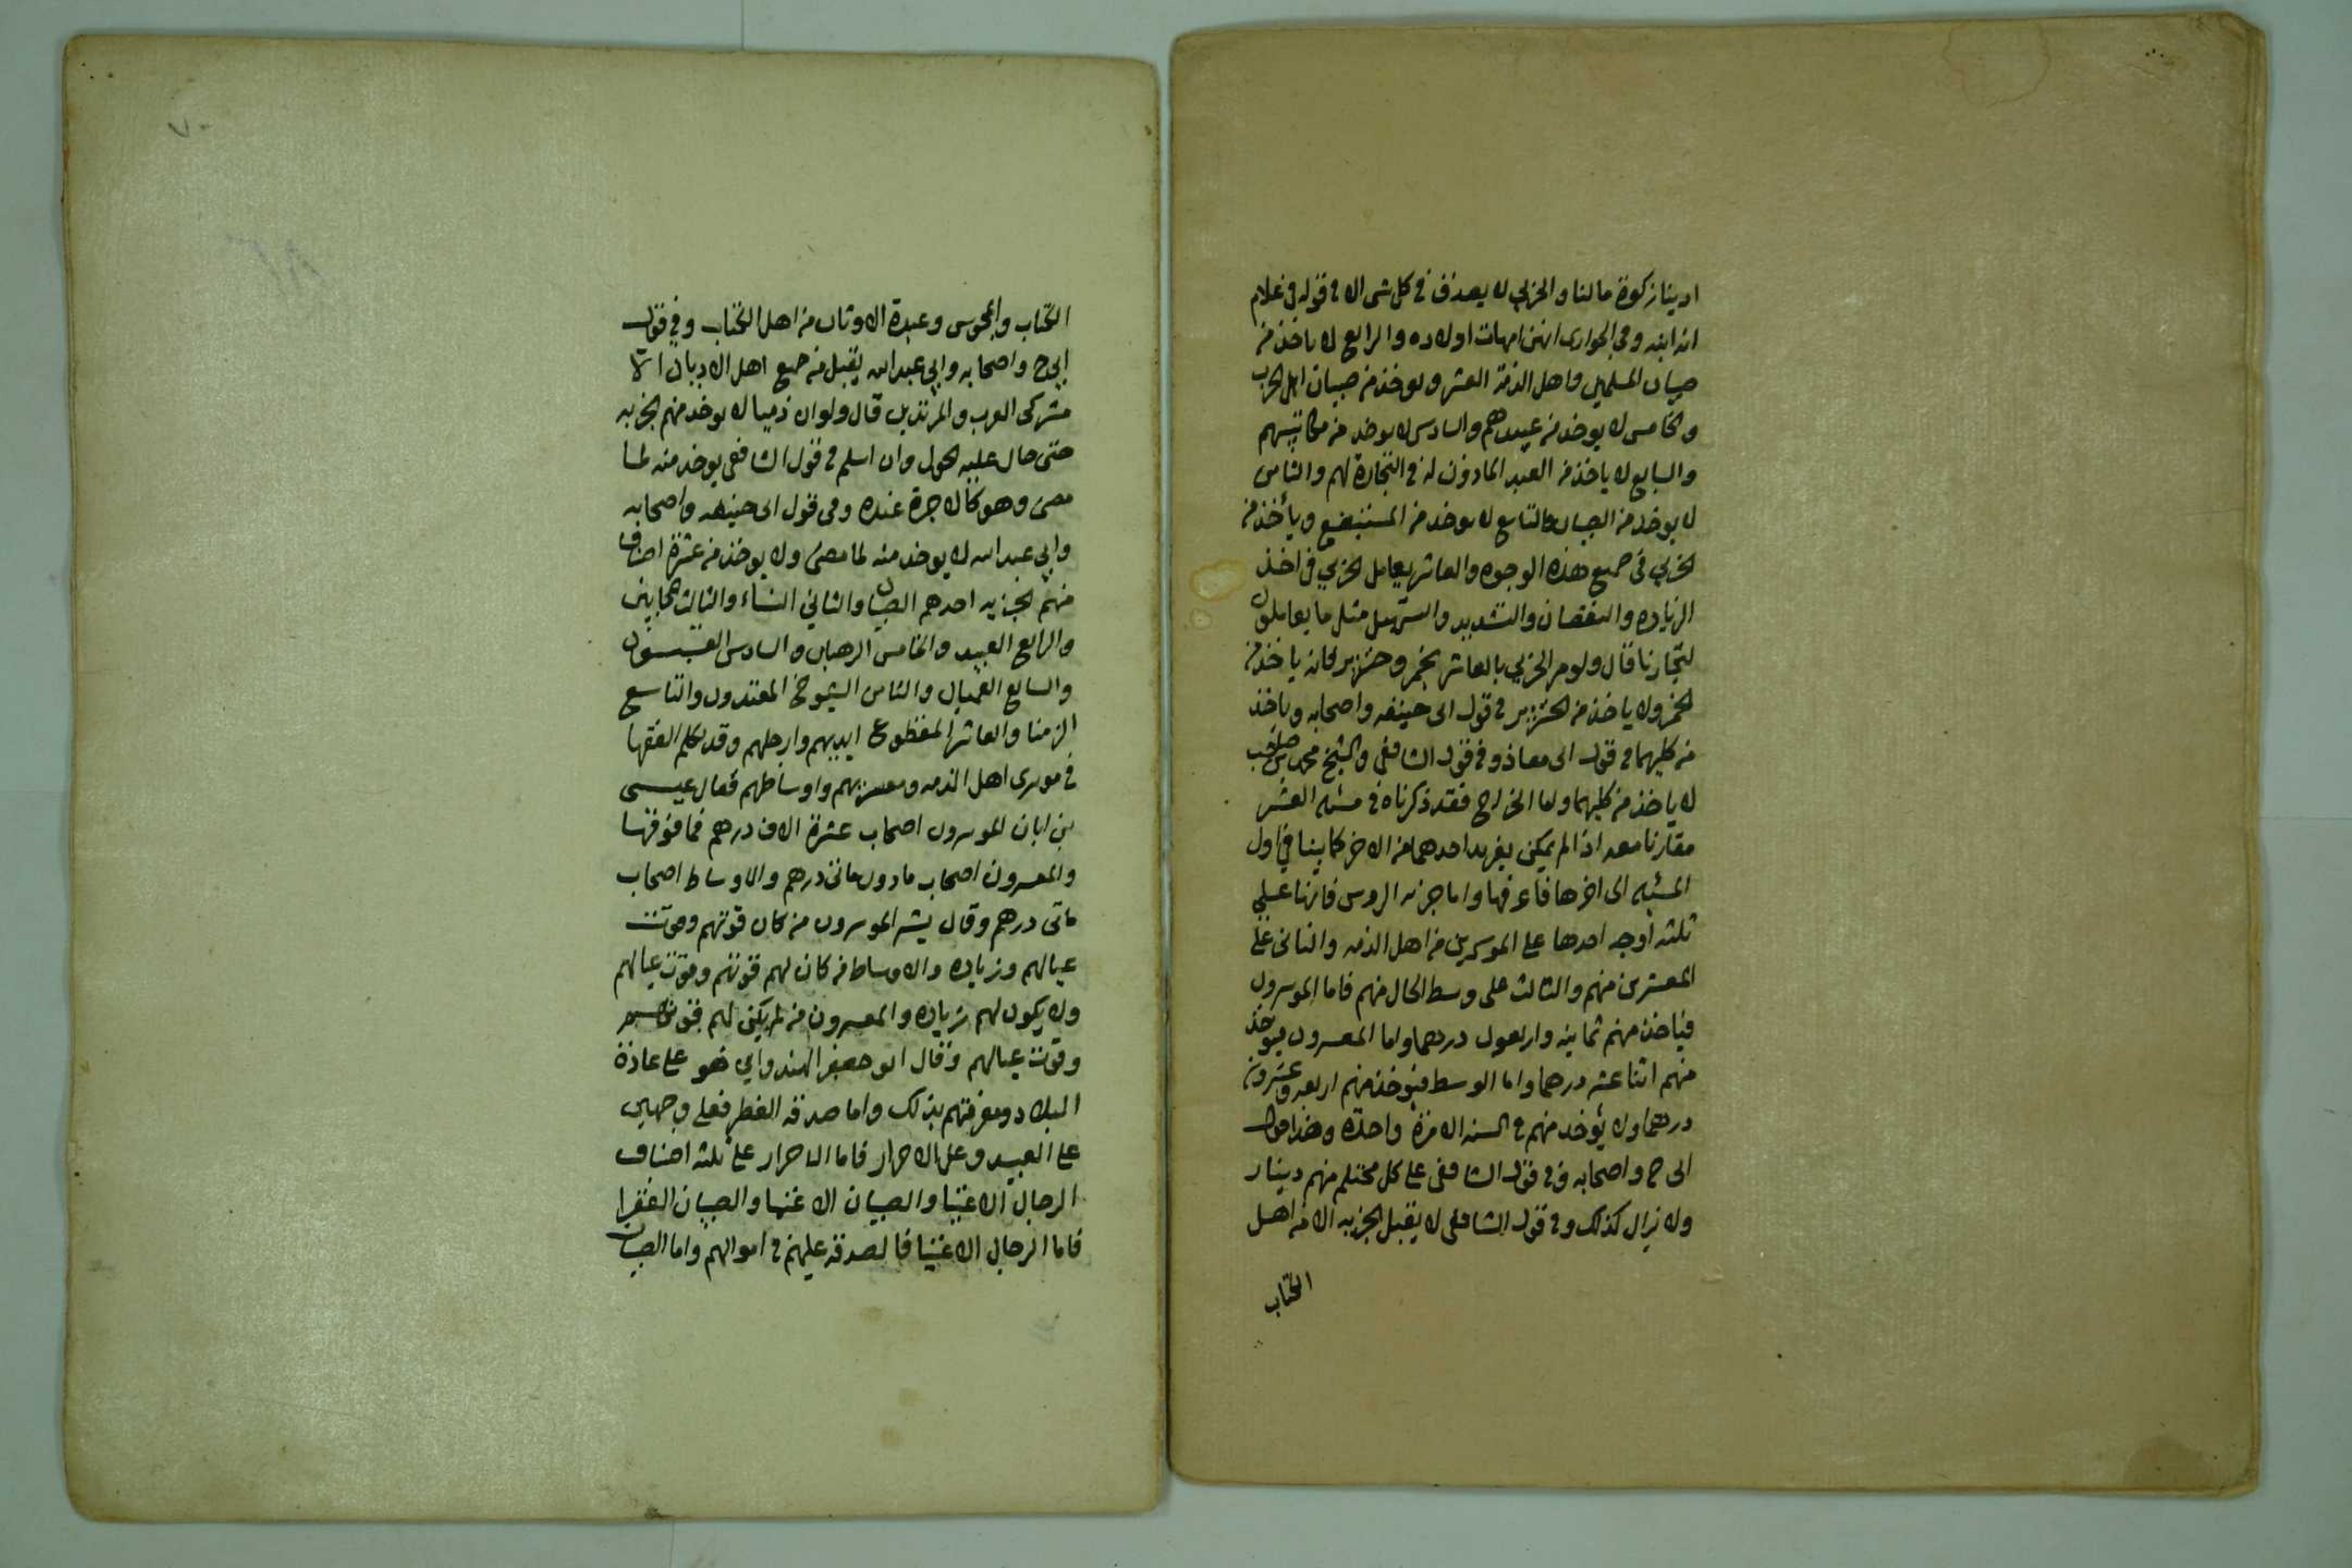 ادينا زكوة مالنا والحربي لا يصدق في كل شى الا في قوله في غلام
انه ابنه وفي الجوارى انهن امهات اولاده والرابع لا ياخذ من
صبيان المسلمين واهل الذمة العشر ويوخذ من صبيان اهل الحرب
والخامس لا يوخذ من عبيدهم والسادس لا يوخذ من مكاتبيهم
والسابع لا ياخذ من العبد الماذون له في التجارة لهم والثامن
لا يوخذ من الصبيان والتاسع لا يوخذ من المستبضع ويأخذ من
الحربي في جميع هذه الوجوه والعاشر يعامل الحربي في اخذ
الزياده والنقصان والتشديد والتسهيل مثل ما يعاملون
تجارنا قال ولو مر الحربي بالعاشر بخمر وخنزير فانه ياخذ من
الخمر ولا ياخذ من الخنزير في قول ابى حنيفه واصحابه وياخذ
من كليهما في قول ابى معاذ وفي قول الشافعى والشيخ محمد بن صاحب
لا ياخذ من كليهما واما الخراج فقد ذكرناه في مسئله العشر
مقارنا معه اذا لم يمكن يفرد احدهما من الاخر كما بينا في اول
المسئله الى اخرها فاعرفها واما جزيه الروس فانها على
ثلثه اوجه احدها على الموسرين من اهل الذمه والثانى على
المعسرين منهم والثالث على وسط الحال منهم فاما الموسرون
فياخذ منهم ثمانيه واربعون درهما واما المعسرون فيوخذ
منهم اثنا عشر درهما واما الوسط فيوخذ منهم اربعه وعشرون
درهما ولا يؤخذ منهم في السنه الا مرة واحدة وهذا قول
ابى ح واصحابه وفي قول الشافعى على كل محتلم منهم دينار
ولا يزال كذلك وفي قول الشافعى لا يقبل الجزيه الا من اهل
الكتاب
الكتاب والمجوس وعبدة الاوثان من اهل الكتاب وفي قول
ابى ح واصحابه وابي عبد الله يقبل من جميع اهل الاديان الا
مشركى العرب والمرتدين قال ولو ان ذميا لا يوخذ منهم الجزيه
حتى حال عليه الحول وان اسلم في قول الشافعى يوخذ منه لما
مضى وهو كالاجرة عنده وفي قول ابى حنيفه واصحابه
وابي عبد الله لا يوخذ منه لما مضى ولا يوخذ من عشرة اصناف
منهم الجزيه احدهم الصبيان والثاني النساء والثالث المجانين
والرابع العبيد والخامس الرهبان والسادس القسيسون
والسابع العميان والثامن الشيوخ المقتدون والتاسع
الزمنا والعاشر المقطوع ايديهم وارجلهم وقد تكلم الفقها
في موسرى اهل الذمه ومعسريهم واوساطهم فقال عيسى
بن ابان الموسرون اصحاب عشرة الاف درهم فما فوقها
والمعسرون اصحاب ما دون مائتى درهم والاوساط اصحاب
مائتى درهم وقال بشر الموسرون من كان قوتهم وقوت
عيالهم وزياده والاوساط من كان لهم قوتهم وقوت عيالهم
ولا يكون لهم زياده والمعسرون من لم يكن لهم قوتهم
وقوت عيالهم وقال ابو جعفر الهندوانى هو على عادة
البلاد ومعرفتهم بذلك واما صدقه الفطر فعلى وجهين
على العبيد وعلى الاحرار فاما الاحرار على ثلثه اصناف
الرجال الاغنيا والصبيان الاغنيا والصبيان الفقرا
فاما الرجال الاغنيا فالصدقه عليهم في اموالهم واما الصبيان